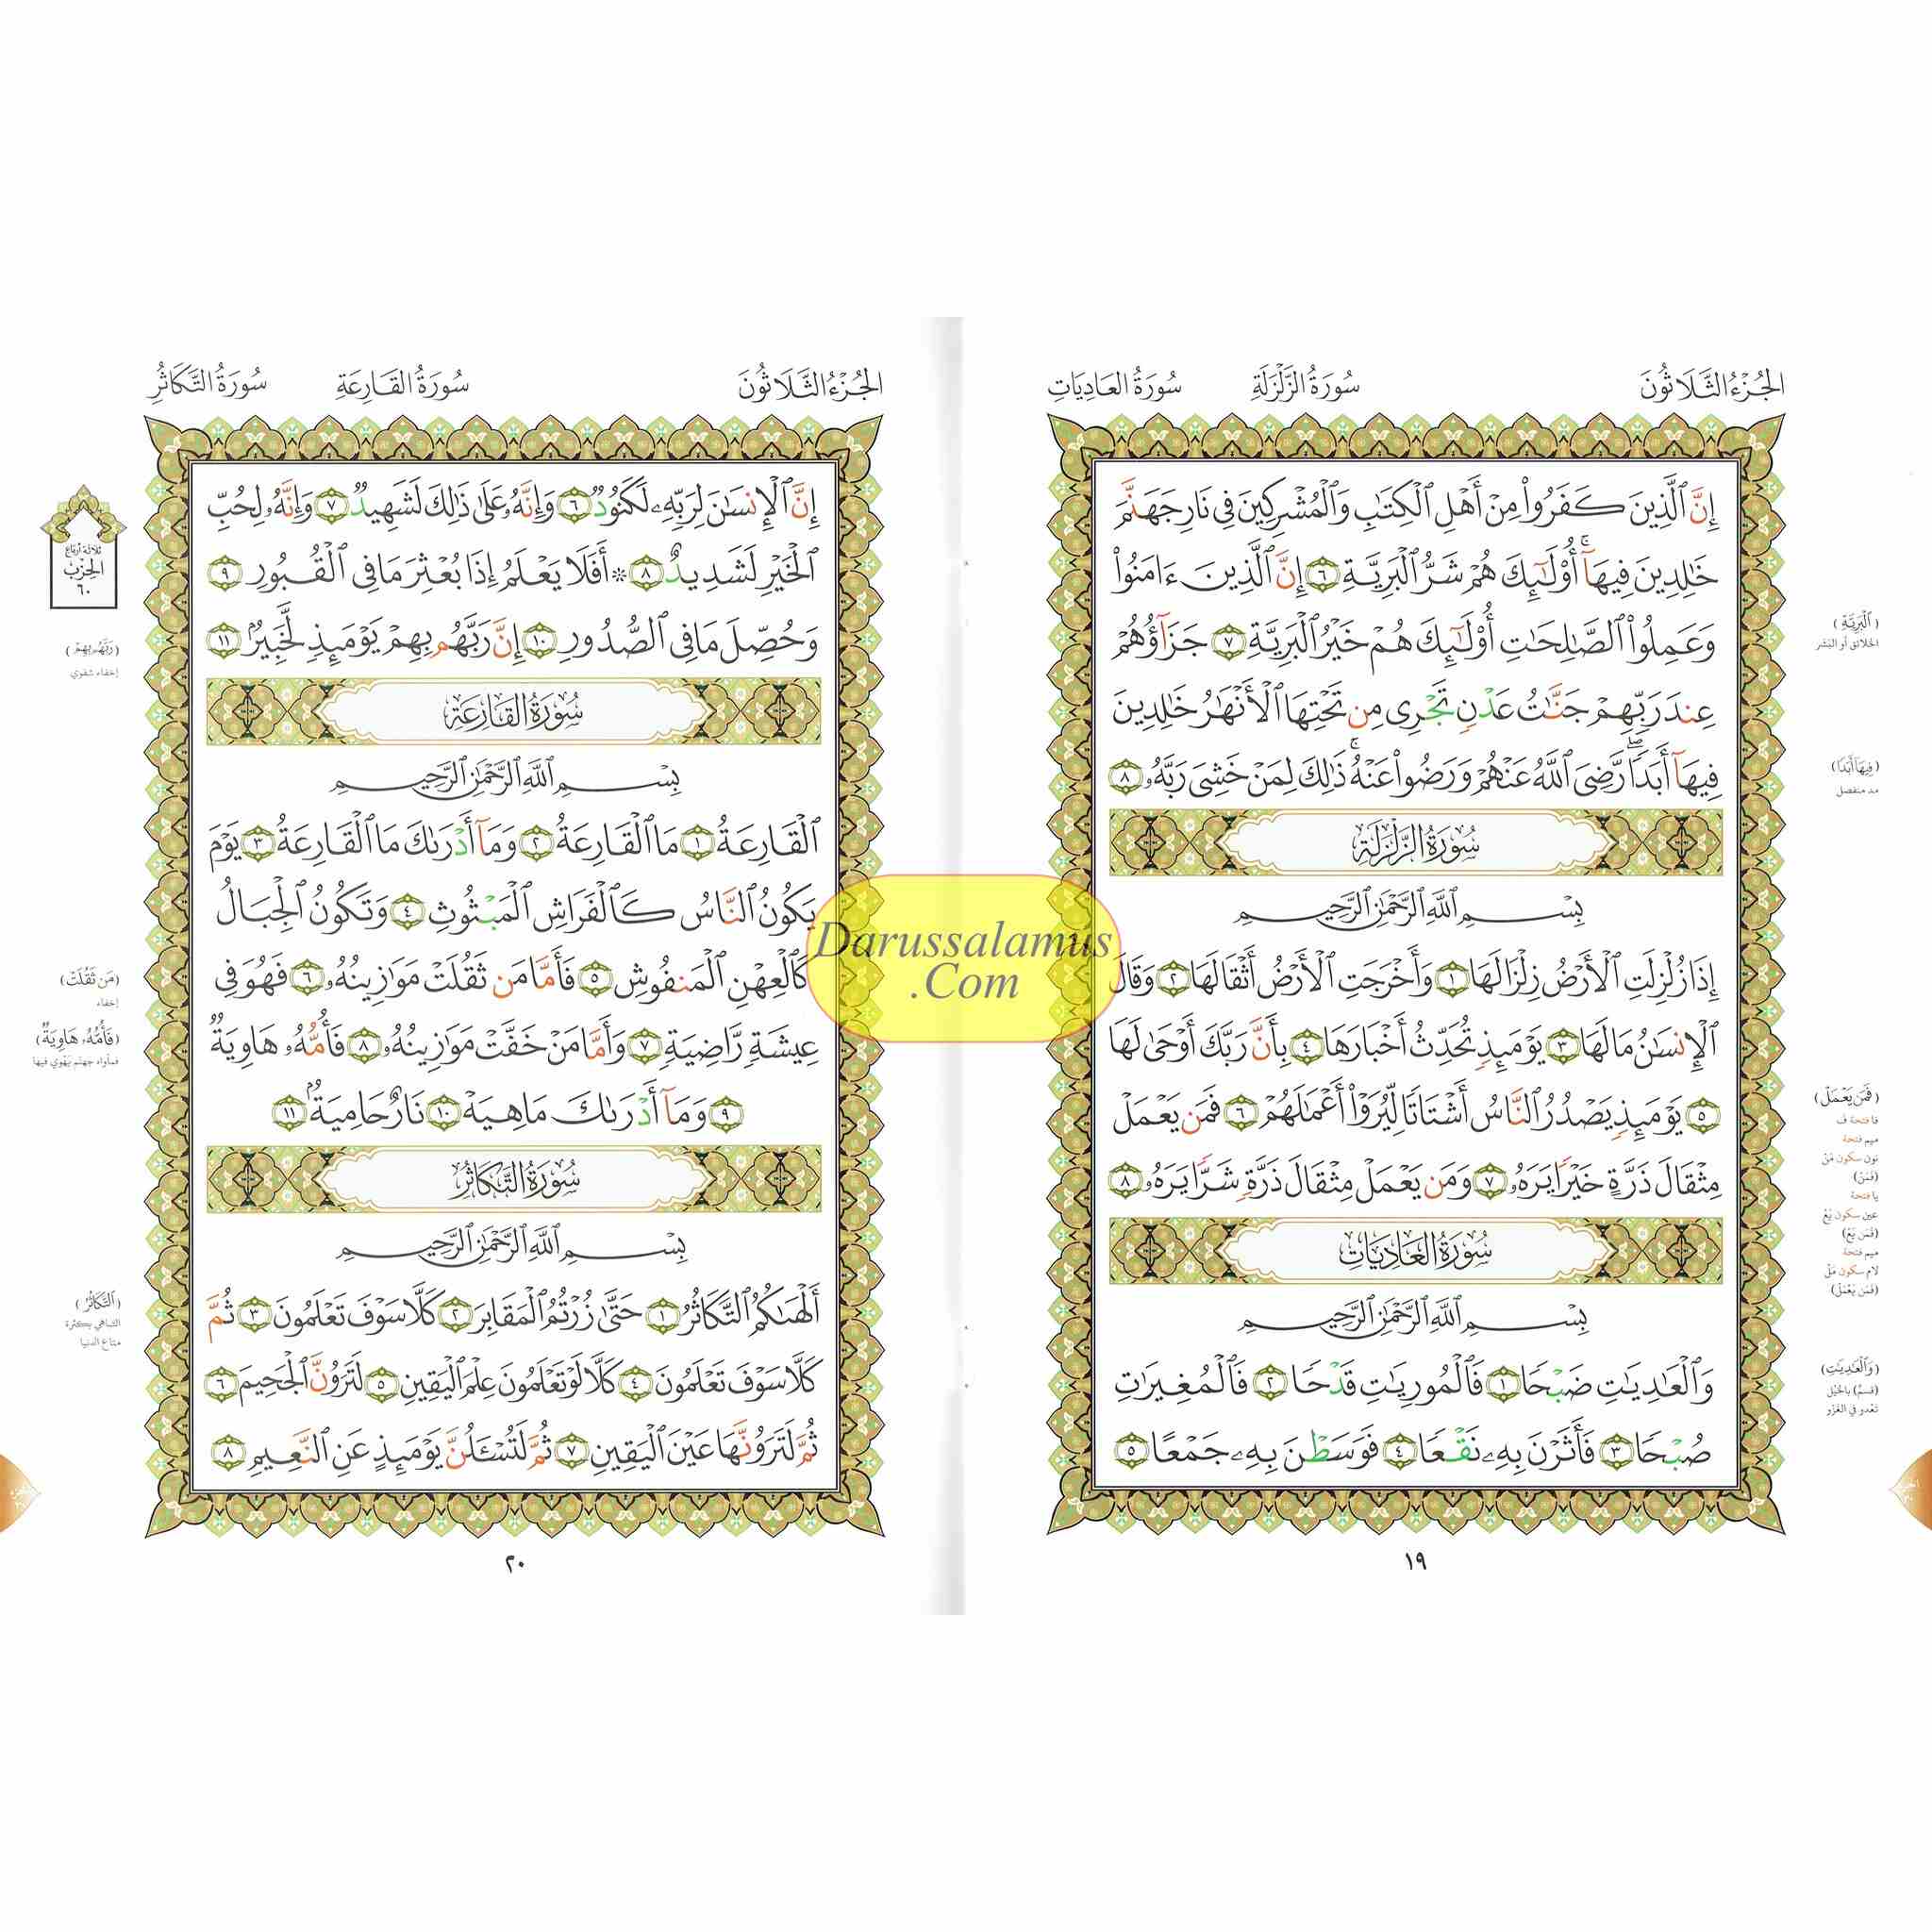 الجُزْءُ الثَّلَاثُونَ سُورَةُ الزَّلْزَلَةِ سُورَةُ العَادِيَاتِ
إِنَّ ٱلَّذِينَ كَفَرُواْ مِنْ أَهْلِ ٱلْكِتَٰبِ وَٱلْمُشْرِكِينَ فِى نَارِ جَهَنَّمَ
خَٰلِدِينَ فِيهَآۚ أُوْلَٰٓئِكَ هُمْ شَرُّ ٱلْبَرِيَّةِ ٦ إِنَّ ٱلَّذِينَ ءَامَنُواْ
وَعَمِلُواْ ٱلصَّٰلِحَٰتِ أُوْلَٰٓئِكَ هُمْ خَيْرُ ٱلْبَرِيَّةِ ٧ جَزَآؤُهُمْ
عِندَ رَبِّهِمْ جَنَّٰتُ عَدْنٍ تَجْرِى مِن تَحْتِهَا ٱلْأَنْهَٰرُ خَٰلِدِينَ
فِيهَآ أَبَدًاۖ رَّضِىَ ٱللَّهُ عَنْهُمْ وَرَضُواْ عَنْهُۚ ذَٰلِكَ لِمَنْ خَشِىَ رَبَّهُۥ ٨
سُورَةُ الزَّلْزَلَةِ
بِسْمِ ٱللَّهِ ٱلرَّحْمَٰنِ ٱلرَّحِيمِ
إِذَا زُلْزِلَتِ ٱلْأَرْضُ زِلْزَالَهَا ١ وَأَخْرَجَتِ ٱلْأَرْضُ أَثْقَالَهَا ٢ وَقَالَ
ٱلْإِنسَٰنُ مَا لَهَا ٣ يَوْمَئِذٍ تُحَدِّثُ أَخْبَارَهَا ٤ بِأَنَّ رَبَّكَ أَوْحَىٰ لَهَا
٥ يَوْمَئِذٍ يَصْدُرُ ٱلنَّاسُ أَشْتَاتًا لِّيُرَوْاْ أَعْمَٰلَهُمْ ٦ فَمَن يَعْمَلْ
مِثْقَالَ ذَرَّةٍ خَيْرًا يَرَهُۥ ٧ وَمَن يَعْمَلْ مِثْقَالَ ذَرَّةٍ شَرًّا يَرَهُۥ ٨
سُورَةُ العَادِيَاتِ
بِسْمِ ٱللَّهِ ٱلرَّحْمَٰنِ ٱلرَّحِيمِ
وَٱلْعَٰدِيَٰتِ ضَبْحًا ١ فَٱلْمُورِيَٰتِ قَدْحًا ٢ فَٱلْمُغِيرَٰتِ
صُبْحًا ٣ فَأَثَرْنَ بِهِۦ نَقْعًا ٤ فَوَسَطْنَ بِهِۦ جَمْعًا ٥
١٩
(ٱلْبَرِيَّةِ)
الخلائق أو البشر
(فِيهَآ أَبَدًا)
مد منفصل
(فَمَن يَعْمَلْ)
فا فتحة ف
ميم فتحة
نون سكون مَنْ
(فَمَنْ)
يا فتحة
عين سكون يَعْ
(فَمَن يَعْ)
ميم فتحة
لام سكون مَلْ
(فَمَن يَعْمَلْ)
(وَٱلْعَٰدِيَٰتِ)
(قسم) بالخيل
تعدو في الغزو
الجُزْءُ الثَّلَاثُونَ سُورَةُ القَارِعَةِ سُورَةُ التَّكَاثُرِ
إِنَّ ٱلْإِنسَٰنَ لِرَبِّهِۦ لَكَنُودٌ ٦ وَإِنَّهُۥ عَلَىٰ ذَٰلِكَ لَشَهِيدٌ ٧ وَإِنَّهُۥ لِحُبِّ
ٱلْخَيْرِ لَشَدِيدٌ ٨ ۞ أَفَلَا يَعْلَمُ إِذَا بُعْثِرَ مَا فِى ٱلْقُبُورِ ٩
وَحُصِّلَ مَا فِى ٱلصُّدُورِ ١٠ إِنَّ رَبَّهُم بِهِمْ يَوْمَئِذٍ لَّخَبِيرٌۢ ١١
سُورَةُ القَارِعَةِ
بِسْمِ ٱللَّهِ ٱلرَّحْمَٰنِ ٱلرَّحِيمِ
ٱلْقَارِعَةُ ١ مَا ٱلْقَارِعَةُ ٢ وَمَآ أَدْرَىٰكَ مَا ٱلْقَارِعَةُ ٣ يَوْمَ
يَكُونُ ٱلنَّاسُ كَٱلْفَرَاشِ ٱلْمَبْثُوثِ ٤ وَتَكُونُ ٱلْجِبَالُ
كَٱلْعِهْنِ ٱلْمَنفُوشِ ٥ فَأَمَّا مَن ثَقُلَتْ مَوَٰزِينُهُۥ ٦ فَهُوَ فِى
عِيشَةٍ رَّاضِيَةٍ ٧ وَأَمَّا مَنْ خَفَّتْ مَوَٰزِينُهُۥ ٨ فَأُمُّهُۥ هَاوِيَةٌ
٩ وَمَآ أَدْرَىٰكَ مَا هِيَهْ ١٠ نَارٌ حَامِيَةٌۢ ١١
سُورَةُ التَّكَاثُرِ
بِسْمِ ٱللَّهِ ٱلرَّحْمَٰنِ ٱلرَّحِيمِ
أَلْهَىٰكُمُ ٱلتَّكَاثُرُ ١ حَتَّىٰ زُرْتُمُ ٱلْمَقَابِرَ ٢ كَلَّا سَوْفَ تَعْلَمُونَ ٣ ثُمَّ
كَلَّا سَوْفَ تَعْلَمُونَ ٤ كَلَّا لَوْ تَعْلَمُونَ عِلْمَ ٱلْيَقِينِ ٥ لَتَرَوُنَّ ٱلْجَحِيمَ ٦
ثُمَّ لَتَرَوُنَّهَا عَيْنَ ٱلْيَقِينِ ٧ ثُمَّ لَتُسْـَٔلُنَّ يَوْمَئِذٍ عَنِ ٱلنَّعِيمِ ٨
٢٠
ثلاثة أرباع
الحزب
٦٠
(رَبَّهُم بِهِمْ)
إخفاء شفوي
(مَن ثَقُلَتْ)
إخفاء
(فَأُمُّهُۥ هَاوِيَةٌ)
فمأواه جهنم يهوي فيها
(ٱلتَّكَاثُرُ)
التباهي بكثرة
متاع الدنيا
Darussalamus
.Com